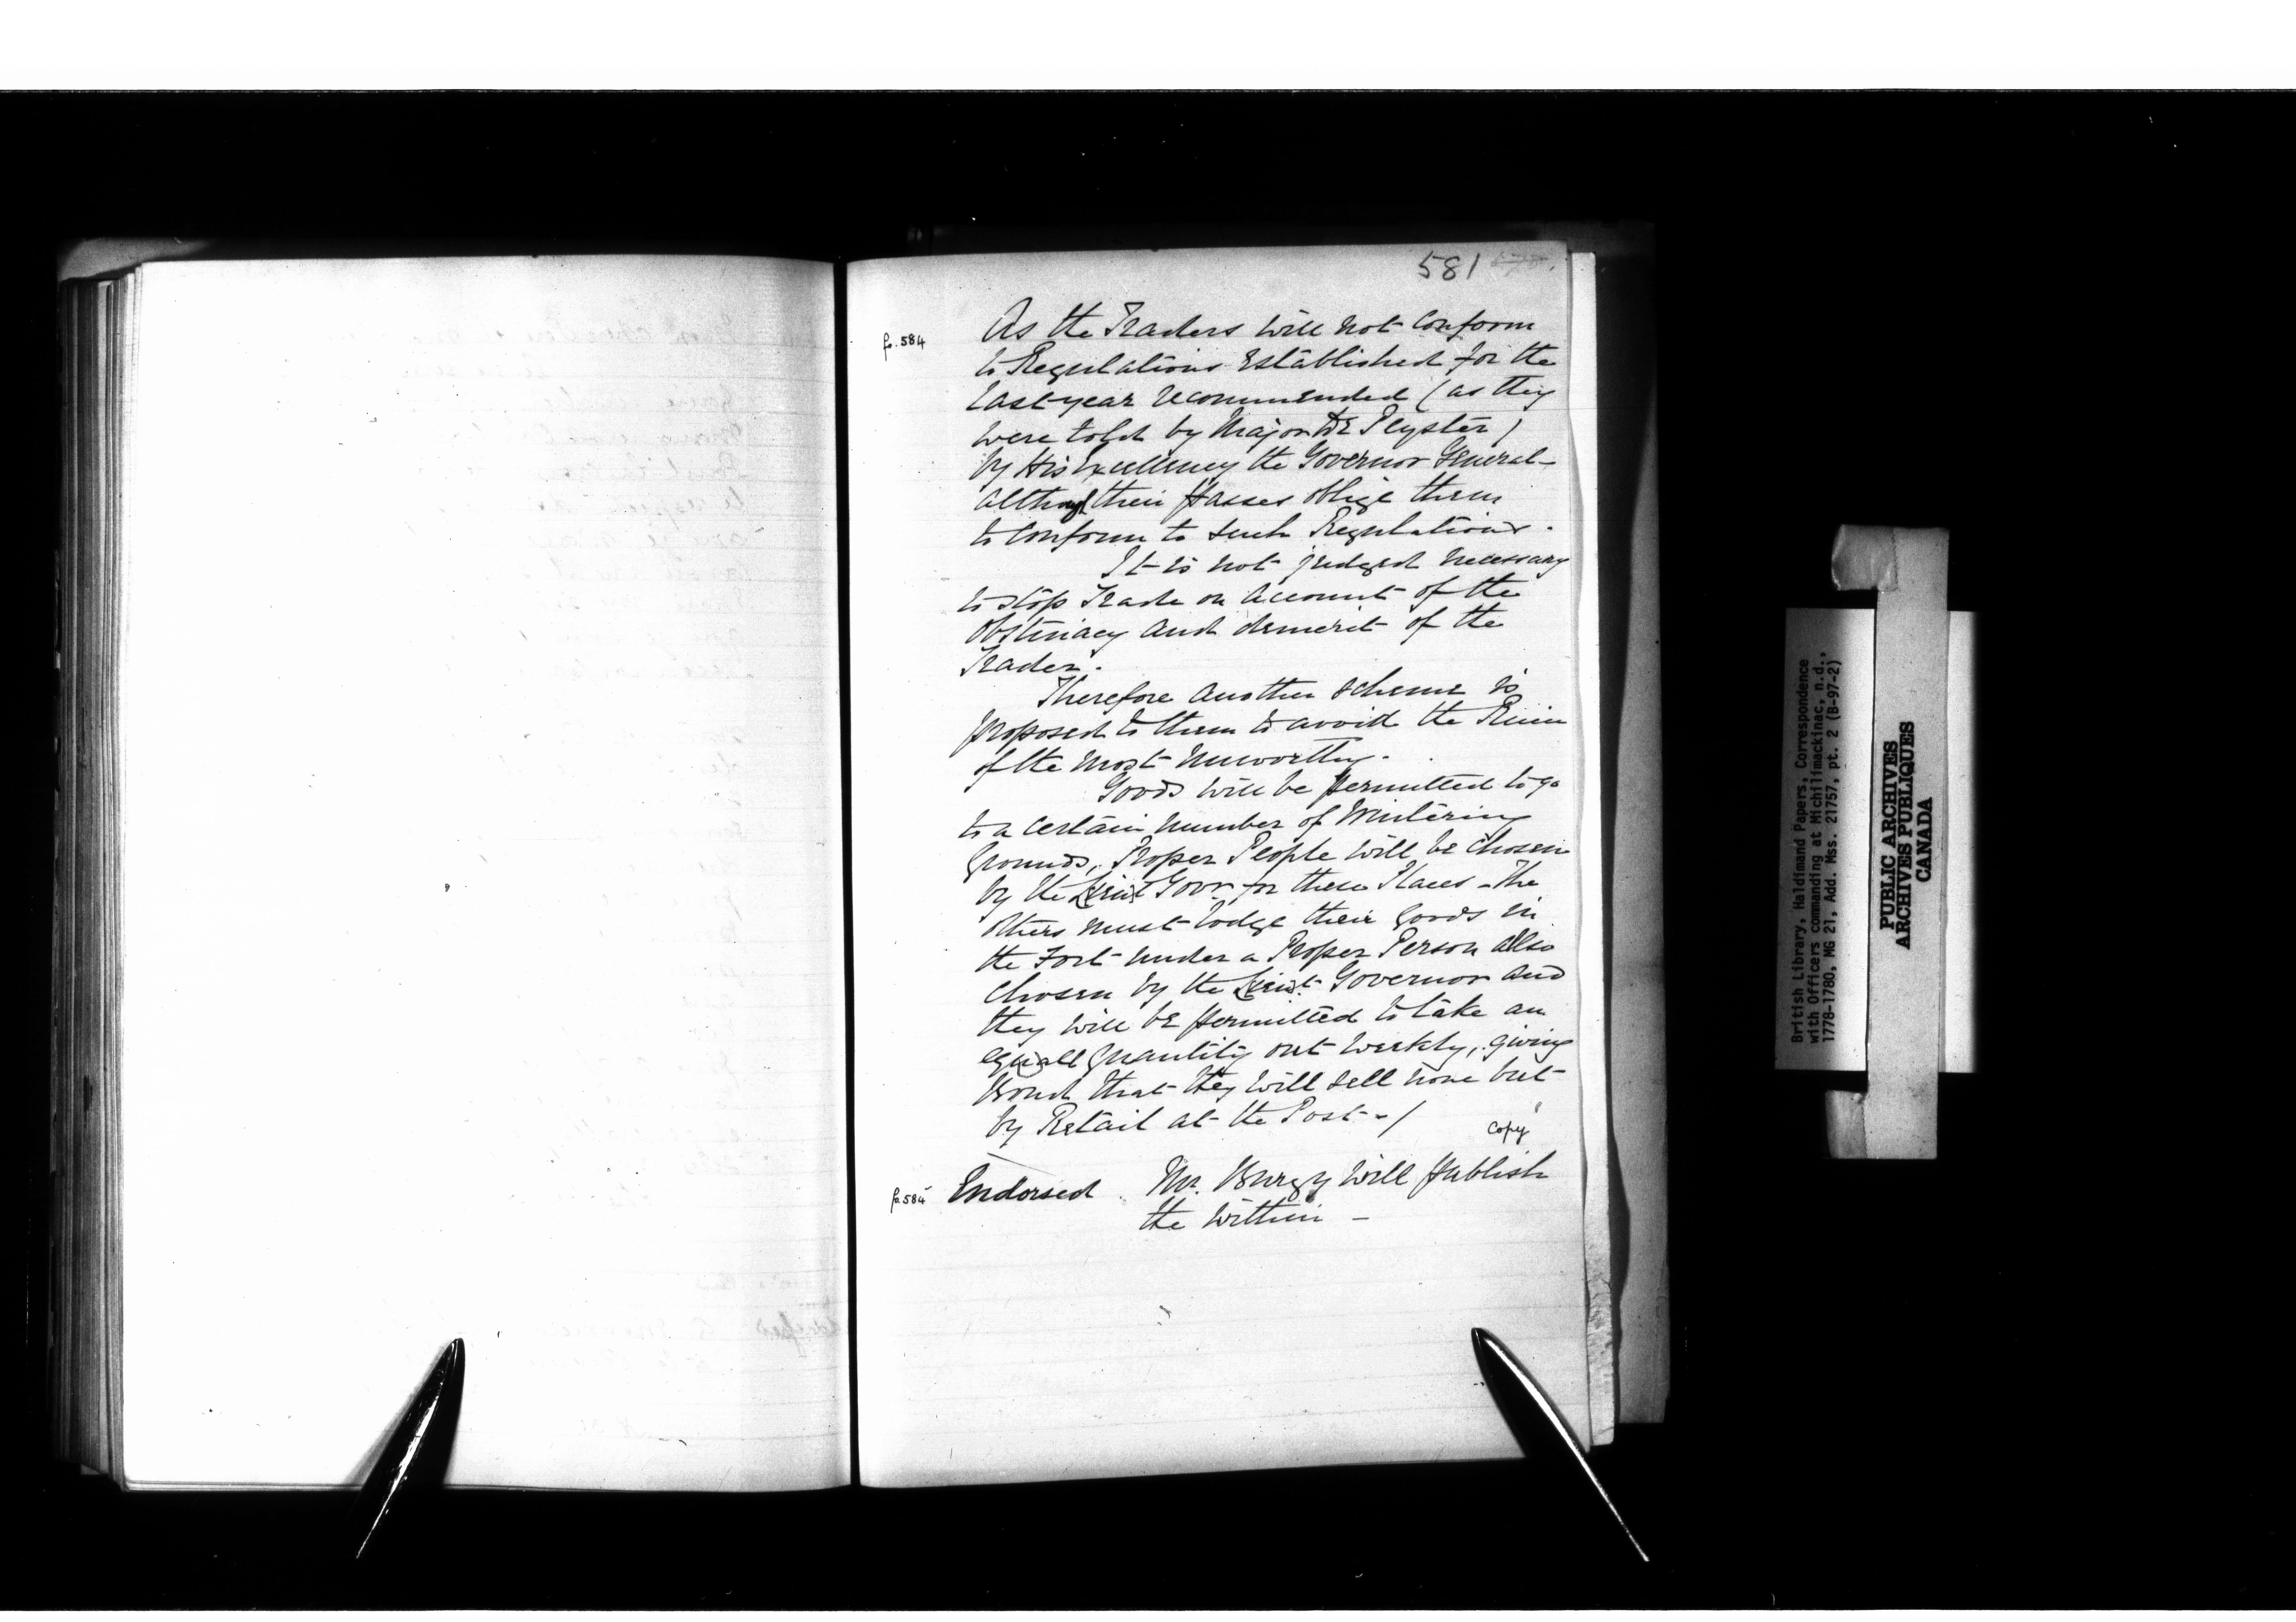 581
fo. 584
As the Traders will not conform
to Regulations Established for the
last year recommended (as they
were told by Major DE Peyster)
by His Excellency the Governor General -
althoug their passes oblige them
to conform to such Regulations.
It is not judged necessary
to stop Trade on account of the
obstinacy and demerit of the
Trader.
Therefore another scheme is
proposed to them to avoid the Ruin
of the most unworthy.
Goods will be permitted to go
to a certain number of Wintering
Grounds, Proper People will be chosen
by the Lieut Govr for these Places - The
others must lodge their goods in
the Fort under a Proper Person also
chosen by the Lieut Governor and
they will be permitted to take an
equall quantity out weekly, giving
Bond that they will sell none but
by Retail at the Post -/
copy
fo. 584 Endorsed Mr. Burgy will publish
the within -
British Library, Haldimand Papers, Correspondence
with Officers commanding at Michilimackinac, n.d.,
1778-1780, MG 21, Add. Mss. 21757, pt. 2 (B-97-2)
PUBLIC ARCHIVES
ARCHIVES PUBLIQUES
CANADA